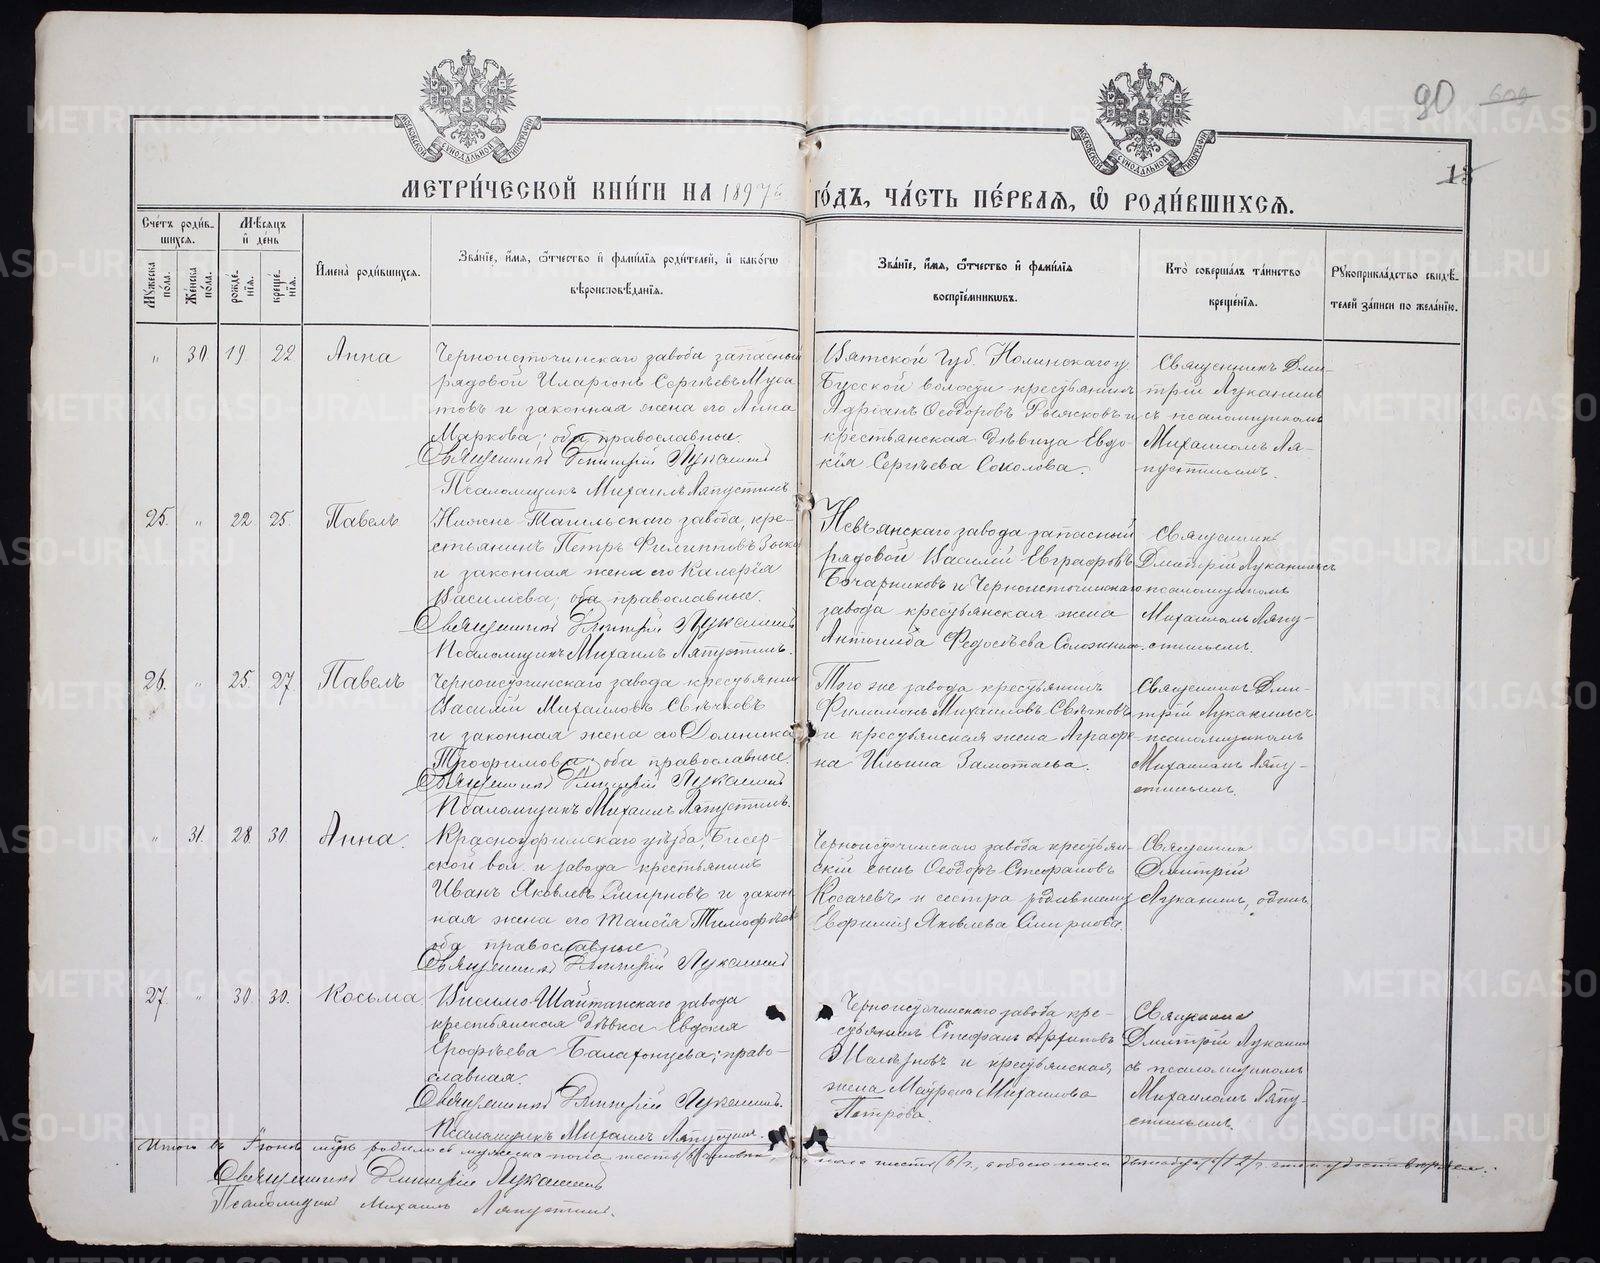 90 609
15
МОСКОВСКОЙ СѴНОДАЛЬНОЙ ТИПОГРАФІИ
МОСКОВСКОЙ СѴНОДАЛЬНОЙ ТИПОГРАФІИ
МЕТРИ́ЧЕСКОЙ КНИ́ГИ НА 1897й ГО́ДЪ, ЧА́СТЬ ПЕ́РВАѦ, Ѽ РОДИ́ВШИХСѦ.
Сче́тъ роди́в-
шихсѧ.
Мꙋ́жеска по́ла.
Же́нска по́ла.
Мѣ́сѧцъ
и҆ де́нь
рожде́нїѧ.
креще́нїѧ.
И҆мена̀ роди́вшихсѧ.
Зва́нїе, и҆́мѧ, ѻ҆́тчество и҆ фами́лїѧ роди́телей, и҆ како́гѡ
вѣроисповѣ́данїѧ.
Зва́нїе, и҆́мѧ, ѻ҆́тчество и҆ фами́лїѧ
воспрїе́мникѡвъ.
Кто̀ соверша́лъ та́инство
креще́нїѧ.
Рꙋкоприкла́дство свидѣ́-
телей за́писи по жела́нїю.
" 30. 19 22 Анна
Черноисточинскаго завода запасный
рядовой Иларіонъ Сергѣевъ Муса
товъ и законная жена его Анна
Маркова; оба православные.
Священникъ Димитрій Луканинъ
Псаломщикъ Михаилъ Ляпустинъ
Вятской Губ. Нолинскаго у.
волости крестьянинъ
Адріанъ Ѳеодоровъ и
крестьянская дѣвица Евдо-
кія Сергѣева Соколова.
Священникъ Дми-
трій Луканинъ
съ псаломщикомъ
Михаиломъ Ля-
пустинымъ.
25. " 22 25. Павелъ
Нижне Тагильскаго завода, кре-
стьянинъ Петръ Филипповъ
и законная жена его Калерія
Васильева; оба православные.
Священникъ Димитрій Луканинъ
Псаломщикъ Михаилъ Ляпустинъ.
Невьянскаго завода запасный
рядовой Василій Евграфовъ
Бочарниковъ и Черноисточинскаго
завода крестьянская жена
Антонида Федосѣева
Священникъ
Дмитрій Луканинъ съ
псаломщикомъ
Михаиломъ Ляпу-
стинымъ.
26. " 25. 27. Павелъ
Черноисточинскаго завода крестьянинъ
Василій Михаиловъ Свѣчковъ
и законная жена его Домника
Трофимова; оба православные.
Священникъ Димитрій Луканинъ
Псаломщикъ Михаилъ Ляпустинъ.
Того же завода крестьянинъ
Филимонъ Михаиловъ Свѣчковъ
и крестьянская жена Аграфе-
на Ильина Замотаева.
Священникъ Дми-
трій Луканинъ съ
псаломщикомъ
Михаиломъ Ляпу-
стинымъ.
" 31. 28. 30. Анна.
Красноуфимскаго уѣзда, Бисер-
ской вол. и завода крестьянинъ
Иванъ Яковлевъ Смирновъ и закон-
ная жена его Таисія Тимофѣева
оба православные
Священникъ Димитрій Луканинъ
Черноисточинскаго завода крестьян-
скій сынъ Ѳеодоръ Стефановъ
Косачевъ и сестра родившему
Евфимія Яковлева Смирнова.
Священникъ
Дмитрій
Луканинъ, одинъ
27. " 30. 30. Косьма
Висимо Шайтанскаго завода
крестьянская дѣвка Евдокія
Ерофѣева Балахонцева; право-
славная.
Священникъ Димитрій Луканинъ.
Псаломщикъ Михаилъ Ляпустинъ.
Черноисточинскаго завода кре-
стьянинъ Стефанъ Архиповъ
и крестьянская
жена Мавра Михаилова
Петрова.
Священникъ
Дмитрій Луканинъ
съ псаломщикомъ
Михаиломъ Ляпу-
стинымъ.
Итого въ Іюнѣ м҃цѣ родилось мужеска пола шесть /6/, пола шесть /6/, обоего пола двѣнадцать /12/,
Священникъ Димитрій Луканинъ
Псаломщикъ Михаилъ Ляпустинъ.
METRIKI.GASO-URAL.RU